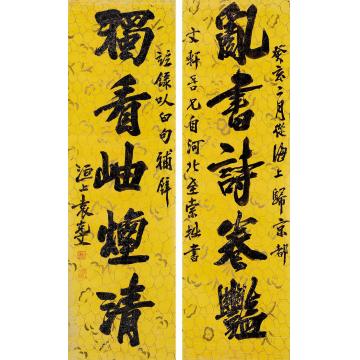 癸亥二月從海上歸京都
亂書詩卷豔
文軒吾兄自河北並索拙書
誰錄以白句補餅
獨看岫煙清
洹上袁克文